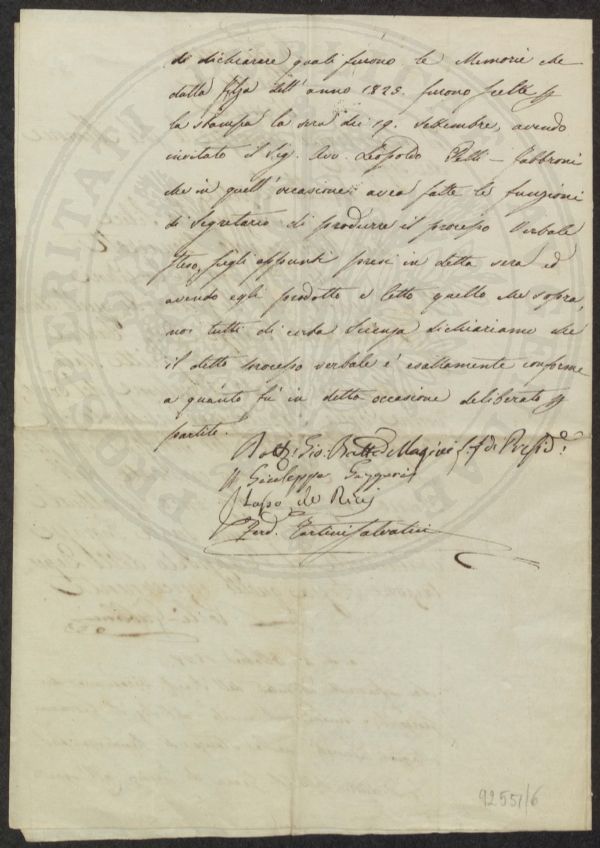 di dichiarare quali furono le Memorie che
dalla filza dell' anno 1825. furono scelte p
la stampa la sera dei 19. Settembre, avendo
invitato il Sig. Avv. Leopoldo Pelli-Fabbroni
che in quell' occasione avea fatte le funzioni
di Segretario di produrre il processo Verbale
steso sugli appunti presi in detta sera ed
avendo egli prodotto e letto quello che sopra,
noi tutti di certa scienza dichiariamo che
il detto processo verbale è esattamente conforme
a quanto fù in detta occasione deliberato p
partito.
Gio. Batta Magini f.f. di Presid.e
Giuseppe Gazzeri
Lapo de Ricci
Ferd. Tartini Salvatici
9255/6